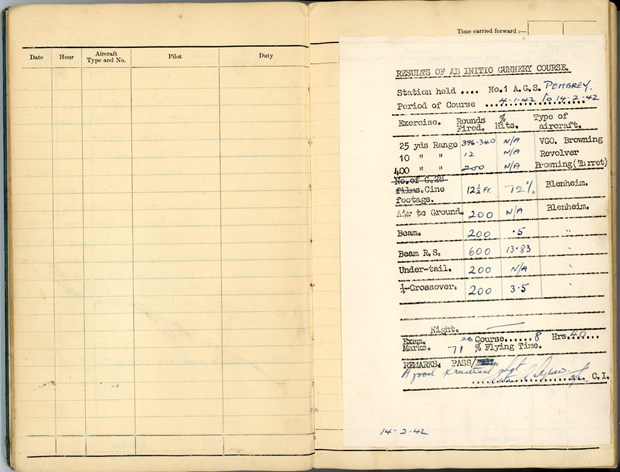 Time carried forward :—
Date Hour Aircraft Type and No. Pilot Duty
RESULTS OF AB INITIO GUNNERY COURSE.
Station held .... No.1 A.G.S. PEMBREY.
Period of Course ....4-1-42 to 14-2-42
Exercise. Rounds Fired. % Hits. Type of aircraft.
25 yds Range 396-340 N/A VGO. Browning
10 " " 12 N/A Revolver
400 " " 200 N/A Browning (Turret)
No. of G.28 films. Cine footage. 12½ Ft. 72% Blenheim.
Air to Ground. 200 N/A Blenheim.
Beam. 200 .5 "
Beam R.S. 600 13.83 "
Under-tail. 200 N/A "
¼-Crossover. 200 3.5 "
Night.
Exam. Course......8 Hrs.40
Marks. 71 % Flying Time.
REMARKS. PASS/
A good practical
C.I.
14-2-42